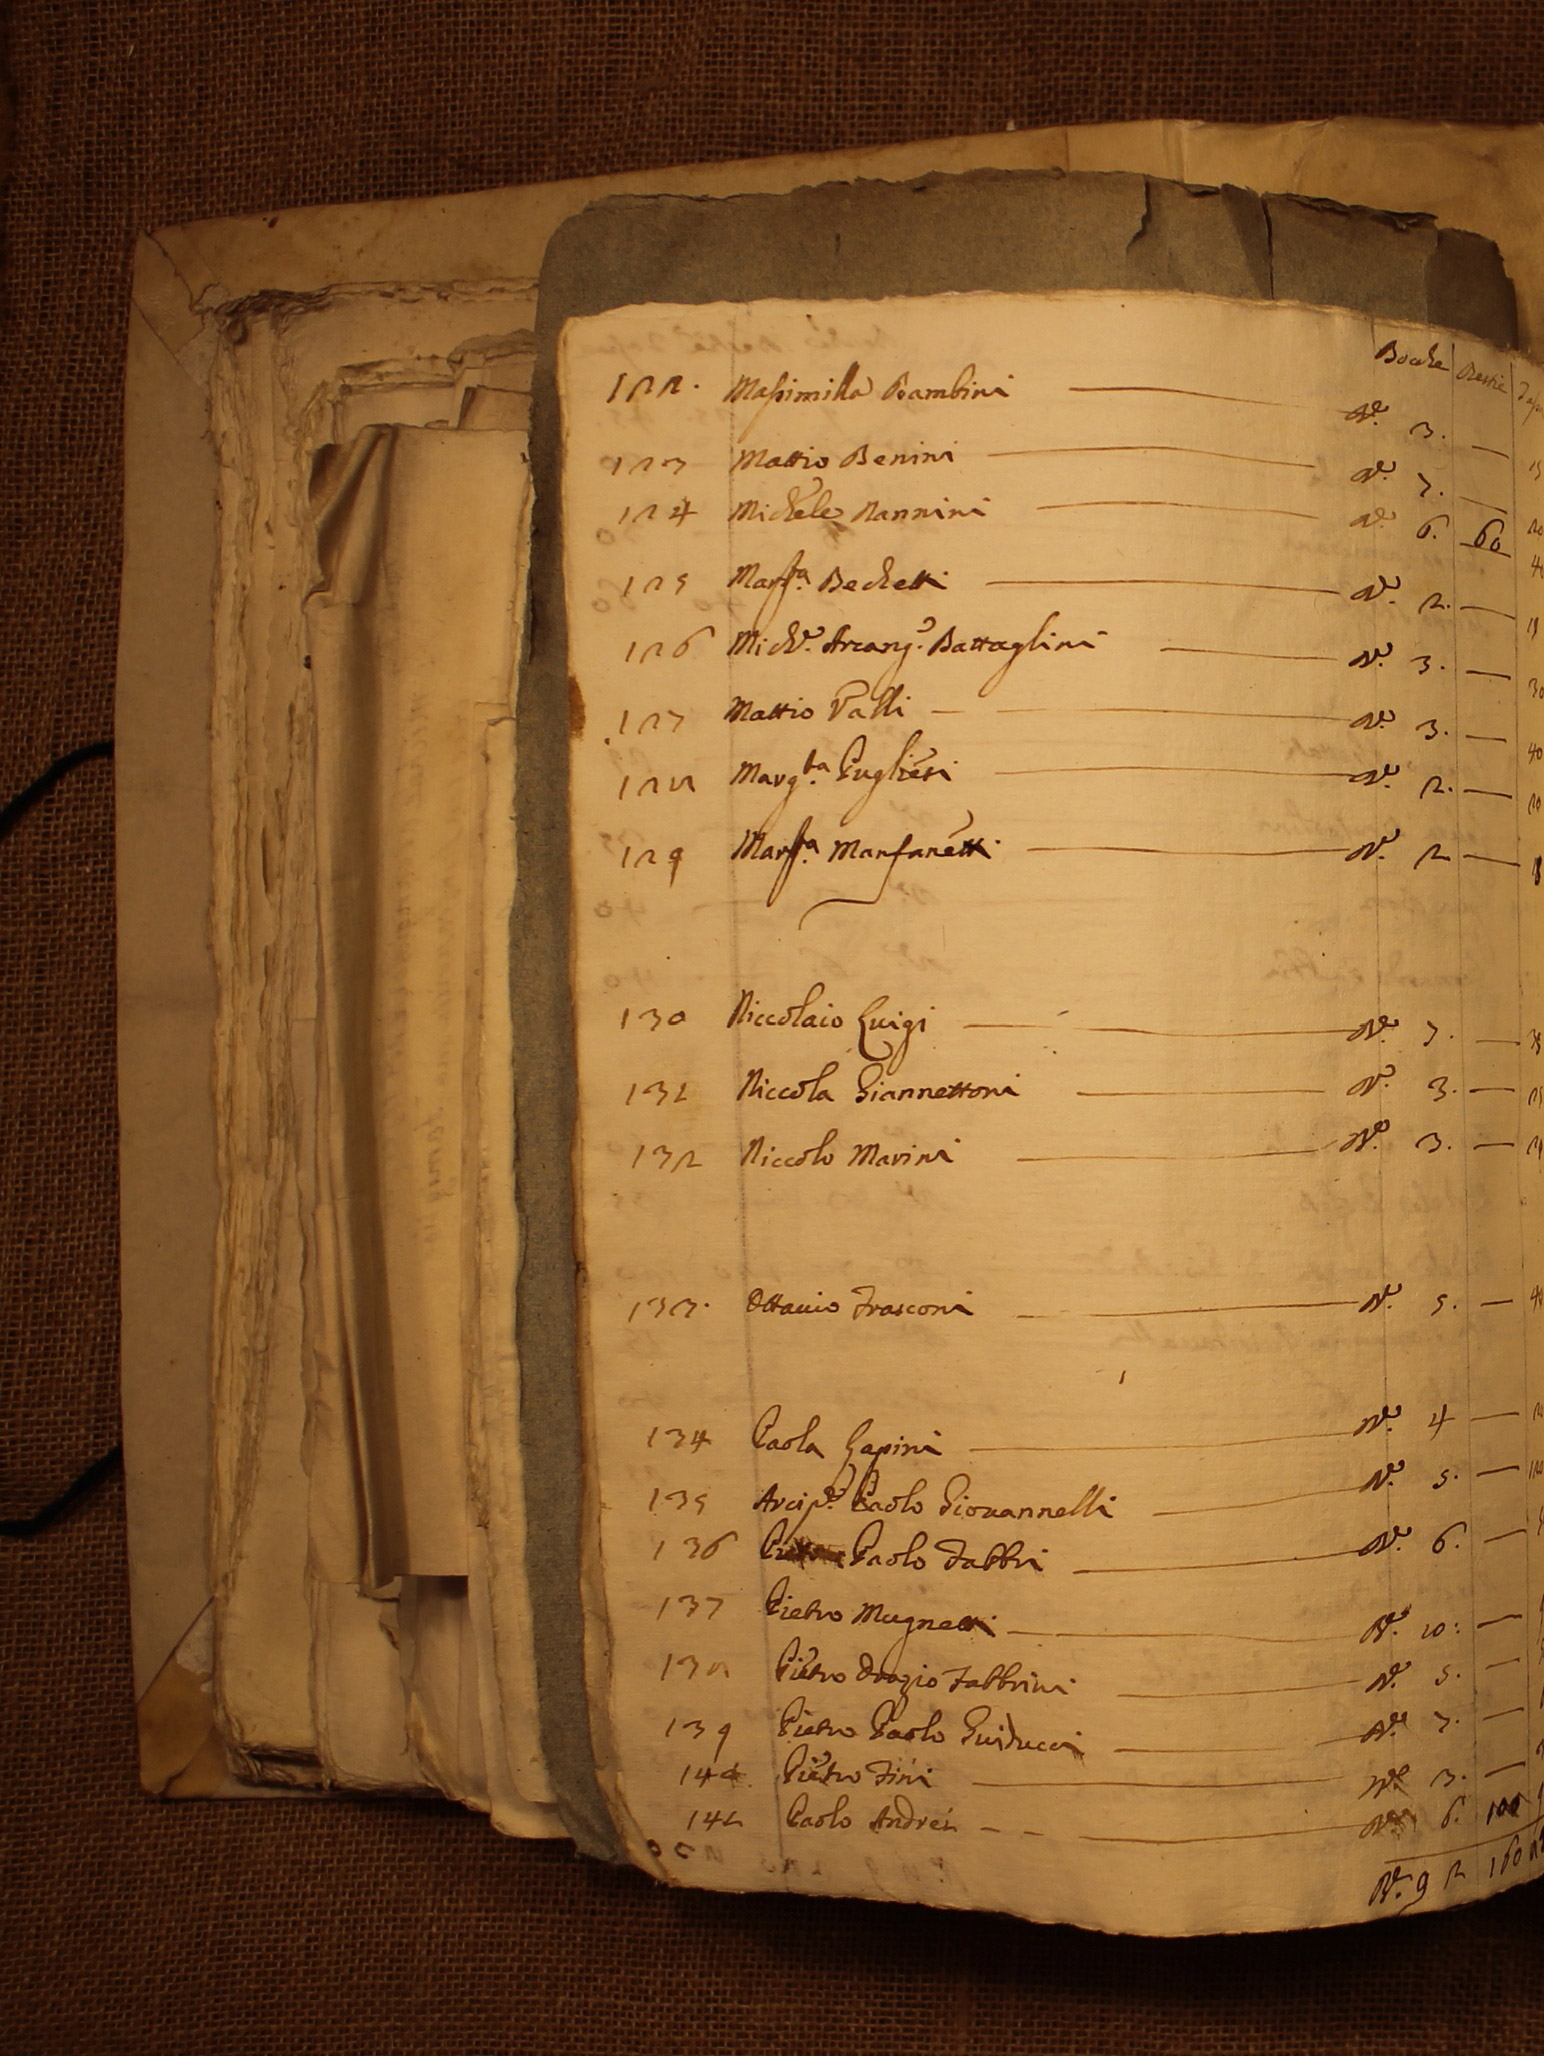 Bocche Bestie
122. Massimilla Bambini N.º 3. — 15
123 Mattio Benini N.º 7. — 20
124 Michele Nannini N.º 6. 60 40
125 Marg.ta Becchetti N.º 2. — 15
126 Mich.e Arcang.o Battaglini N.º 3. — 30
127 Mattio Valli — N.º 3. — 40
128 Marg.ta Puglieri N.º 2. — 20
129 Marg.ta Manfanetti N.º 2 —
130 Niccolaio Luigi N.º 7. —
131 Niccola Giannettoni N.º 3. —
132 Niccolo Marini N.º 3. —
133. Ottauio Frasconi N.º 5. — 40
134 Paola Lapini N.º 4 —
135 Arcip.e Paolo Giouannelli N.º 5. —
136 Paolo Fabbri N.º 6. —
137 Pietro Mugnetti N.º 10: —
138 Pietro Orazio Fabbrini N.º 5. —
139 Pietro Paolo Guiducci N.º 7. —
140. Pietro Fini N.º 3. —
141 Paolo Andrei N.º 6. 100
N.º 92 160